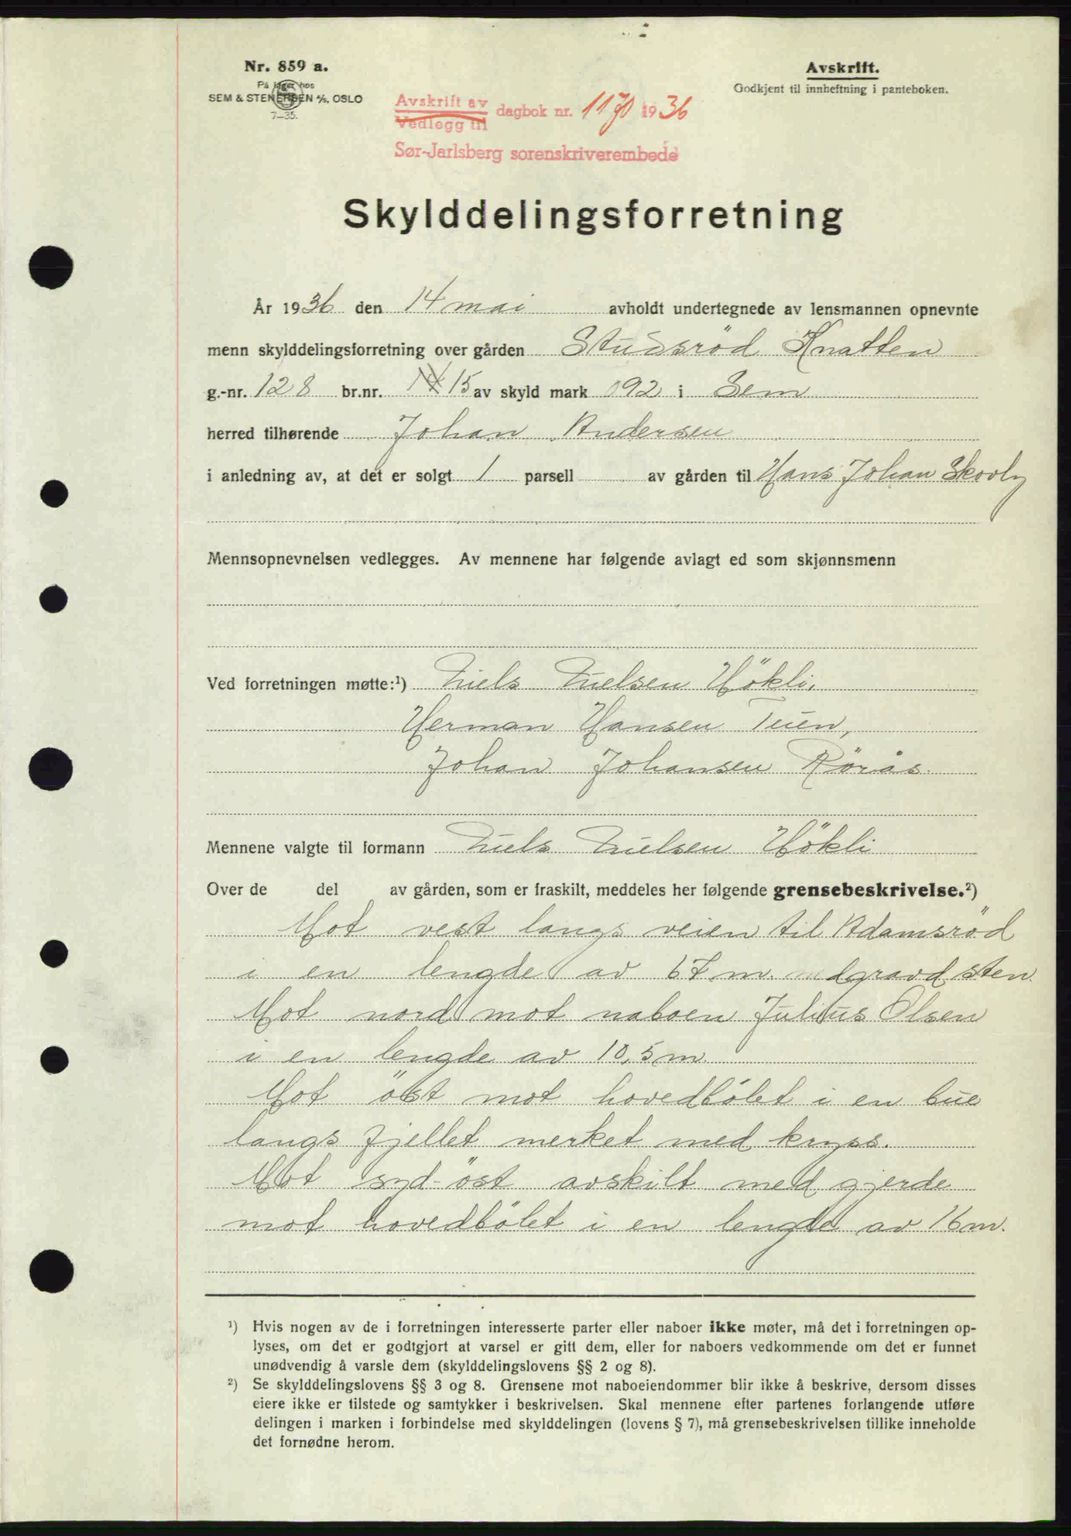 Nr. 859 a.
På lager hos
SEM & STENERSEN A/S, OSLO
7—35.
Avskrift.
Godkjent til innheftning i panteboken.
Avskrift av
Vedlegg til
dagbok nr. 1170 1936
Sør-Jarlsberg sorenskriverembede
Skylddelingsforretning
År 1936 den 14 mai avholdt undertegnede av lensmannen opnevnte
menn skylddelingsforretning over gården Studsröd Knatten
g.-nr. 128 br.nr. 15 av skyld mark 092 i Sem
herred tilhørende Johan Andersen
i anledning av, at det er solgt 1 parsell av gården til Hans Johan Skovly
Mennsopnevnelsen vedlegges. Av mennene har følgende avlagt ed som skjønnsmenn
Ved forretningen møtte:¹) Niels Nielsen Hökli,
Herman Hansen Tuen,
Johan Johansen Rörås.
Mennene valgte til formann Niels Nielsen Hökli
Over de del av gården, som er fraskilt, meddeles her følgende grensebeskrivelse.²)
Mot vest langs veien til Adamsröd
i en lengde av 67 m. nedgravd sten.
Mot nord mot naboen Julius Olsen
i en lengde av 10,5 m.
Mot öst mot hovedbölet i en bue
langs fjellet merket med kryss.
Mot syd-öst avskilt med gjerde
mot hovedbölet i en lengde av 16 m.
¹) Hvis nogen av de i forretningen interesserte parter eller naboer ikke møter, må det i forretningen op-
lyses, om det er godtgjort at varsel er gitt dem, eller for naboers vedkommende om det er funnet
unødvendig å varsle dem (skylddelingslovens §§ 2 og 8).
²) Se skylddelingslovens §§ 3 og 8. Grensene mot naboeiendommer blir ikke å beskrive, dersom disses
eiere ikke er tilstede og samtykker i beskrivelsen. Skal mennene efter partenes forlangende utføre
delingen i marken i forbindelse med skylddelingen (lovens § 7), må grensebeskrivelsen tillike inneholde
det fornødne herom.